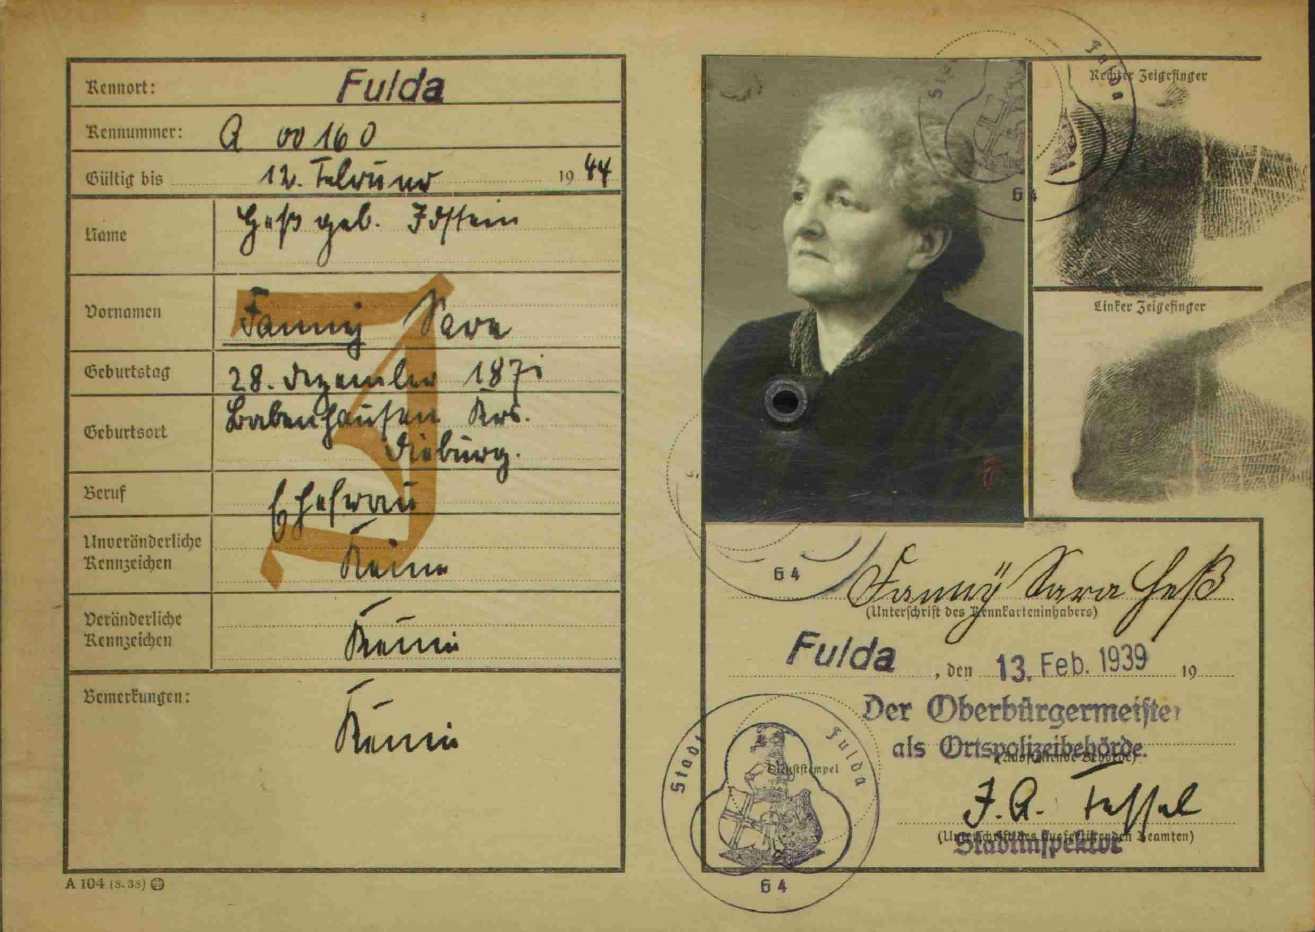 Kennort: Fulda
Kennummer: A 00160
Gültig bis 12. Februar 1944
Name Heß geb. Idstein
Vornamen Fanny Sara
Geburtstag 28. Dezember 1871
Geburtsort Babenhausen Krs.
Dieburg.
Beruf Ehefrau
Unveränderliche
Kennzeichen Keine
Veränderliche
Kennzeichen Keine
Bemerkungen:
Keine
J
A 104 (8.38)
Rechter Zeigefinger
Stadt Fulda
64
Linker Zeigefinger
64
Fanny Sara Heß
(Unterschrift des Kennkarteninhabers)
Fulda, den 13. Feb. 1939 19
Der Oberbürgermeister
als Ortspolizeibehörde.
(Ausstellende Behörde)
Stadt Fulda
Dienststempel
64
J. A.
(Unterschrift des ausfertigenden Beamten)
Stadtinspektor